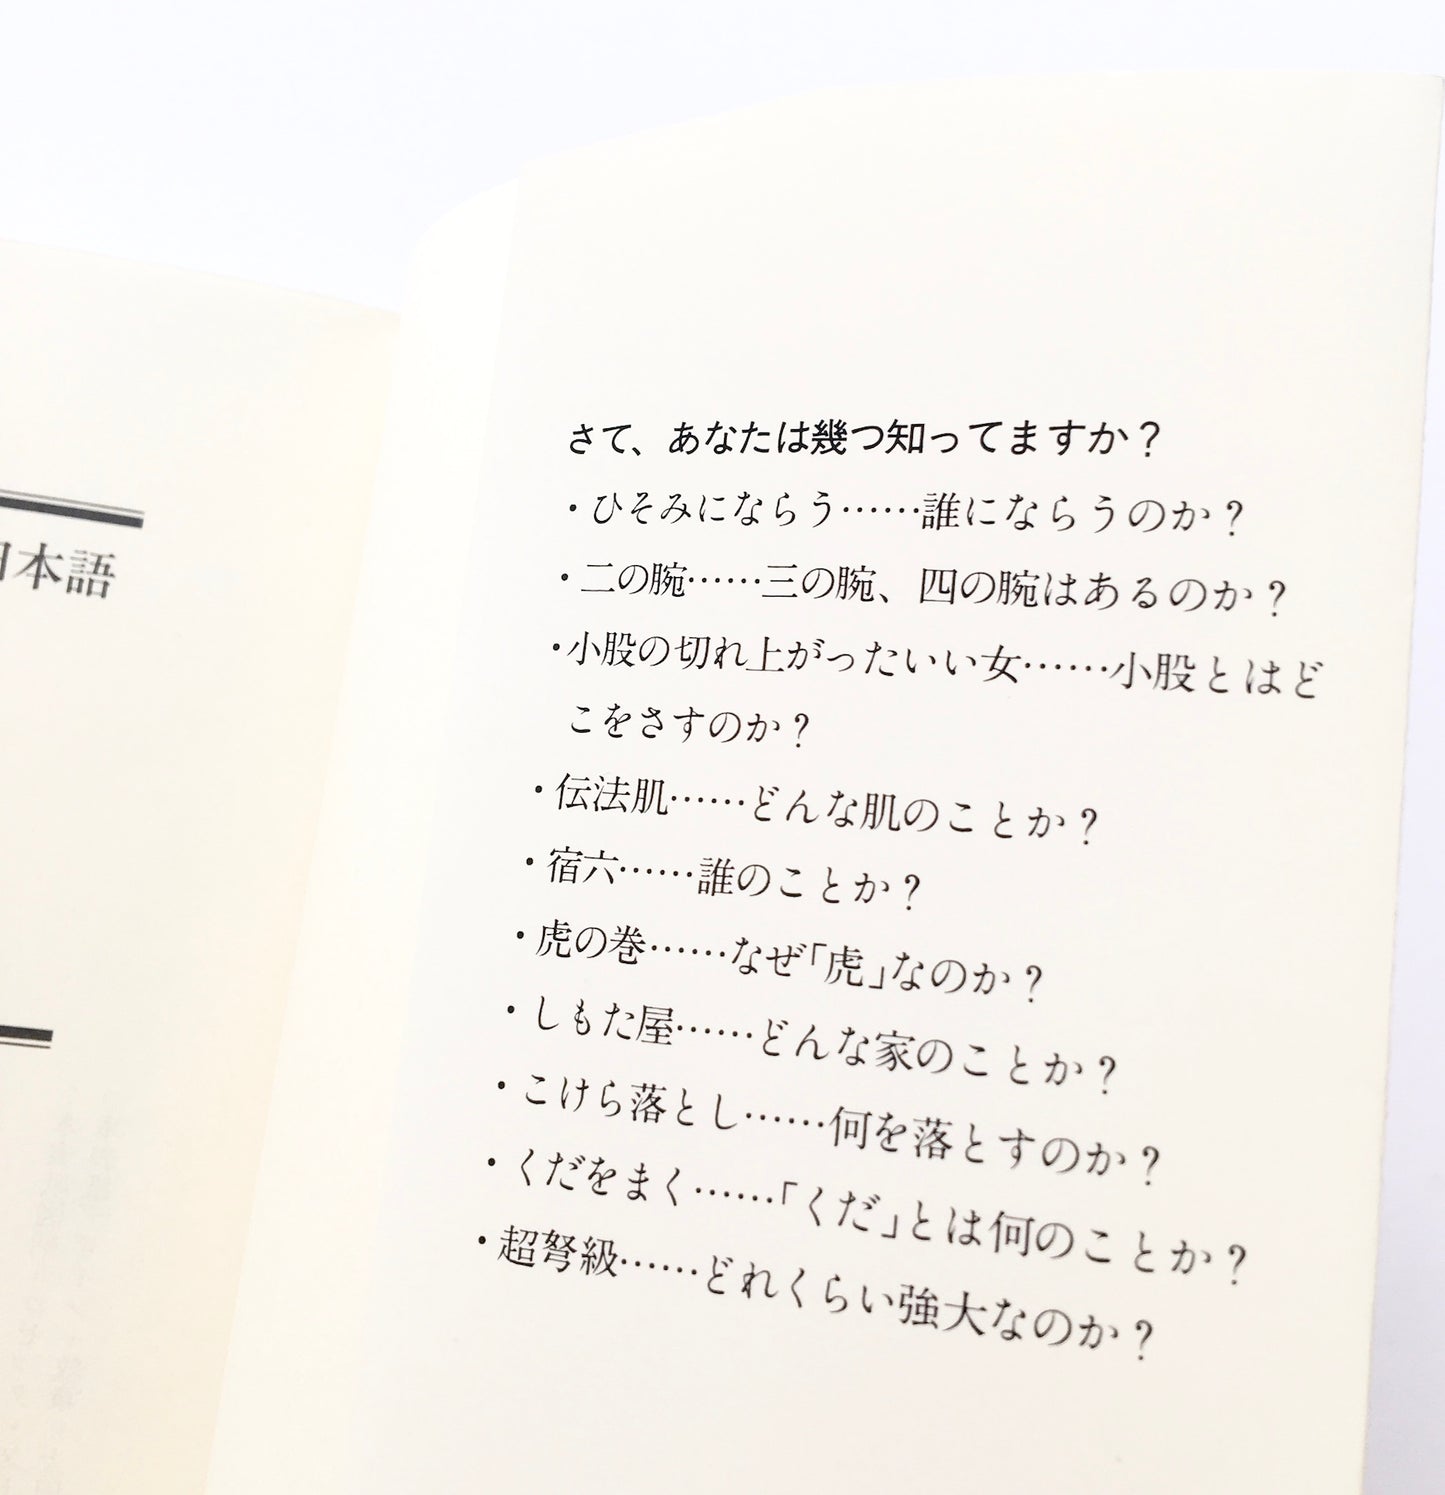 日本語
さて、あなたは幾つ知ってますか？
・ひそみにならう……誰にならうのか？
・二の腕……三の腕、四の腕はあるのか？
・小股の切れ上がったいい女……小股とはど
こをさすのか？
・伝法肌……どんな肌のことか？
・宿六……誰のことか？
・虎の巻……なぜ「虎」なのか？
・しもた屋……どんな家のことか？
・こけら落とし……何を落とすのか？
・くだをまく……「くだ」とは何のことか？
・超弩級……どれくらい強大なのか？